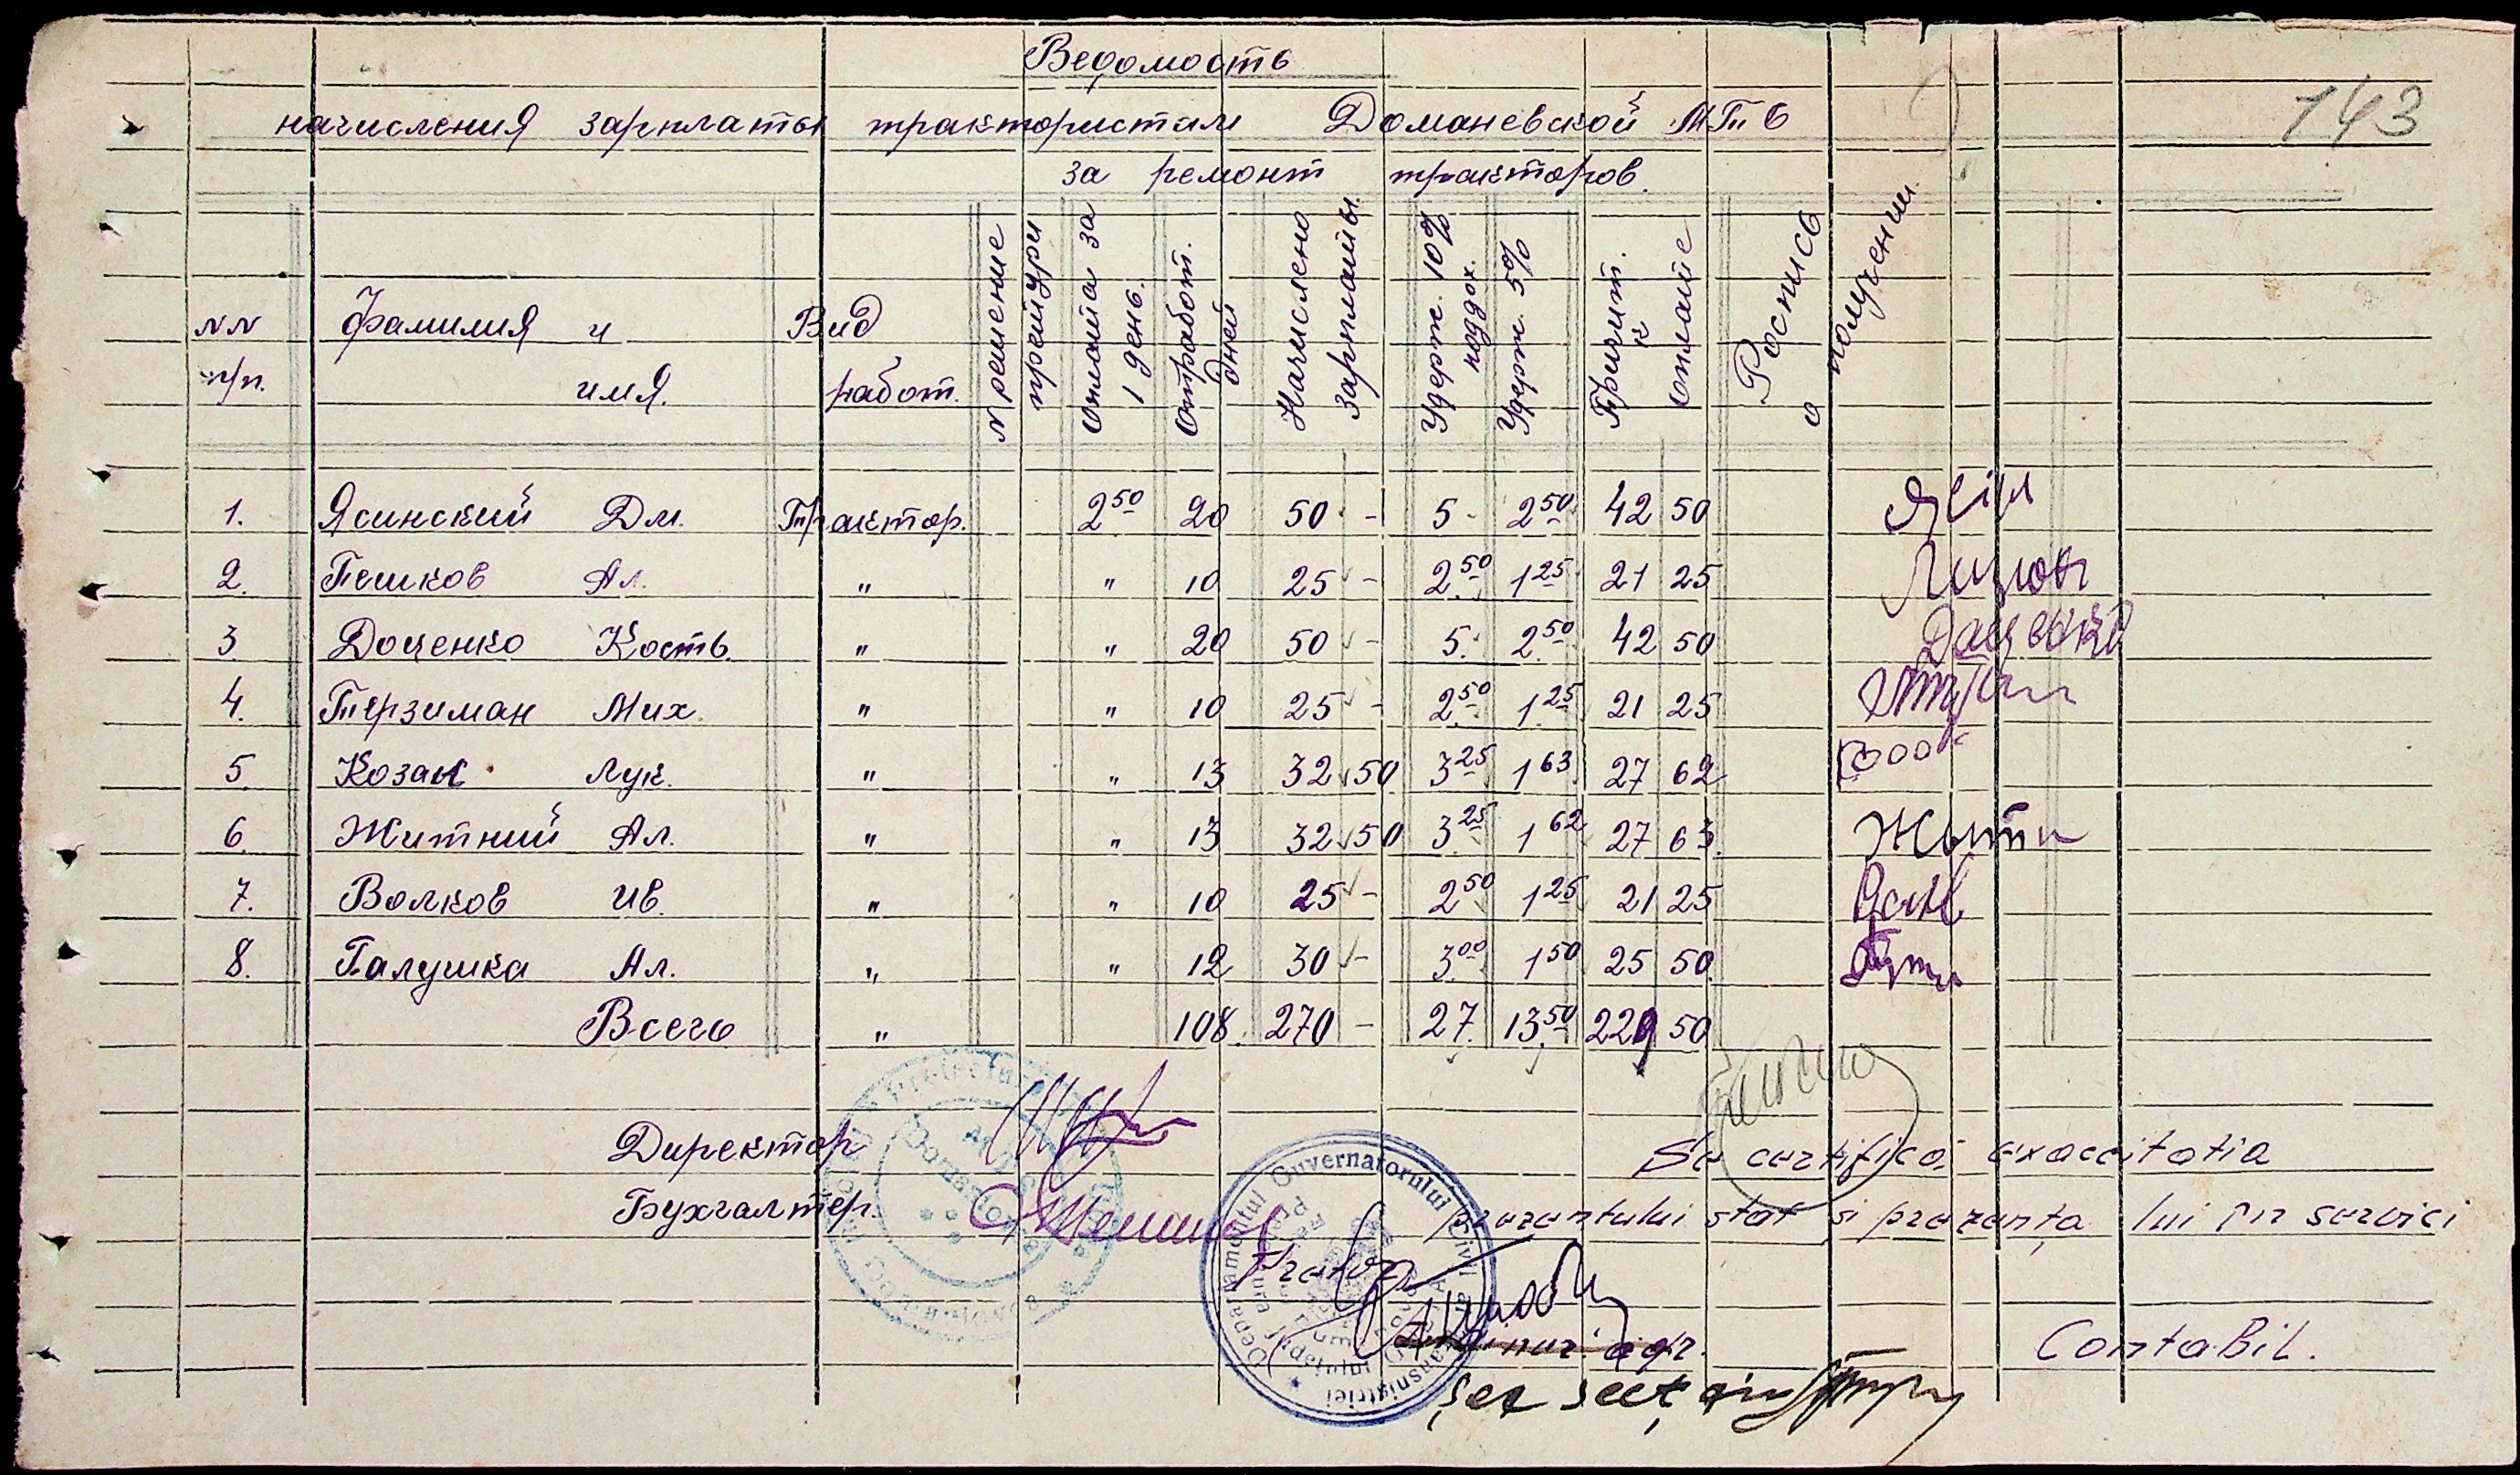 Ведомость
143
начисления зарплаты трактористам Доманевской МТС
за ремонт тракторов.
NN п/п. Фамилия и имя. Вид работ. N решение претури Оплата за 1 день. Отработ. дней Начислено зарплаты. Удерж. 10% поддох. Удерж. 5% Причит. к оплате Роспись о получении
1. Ясинский Дм. Трактор. 2 50 20 50 - 5 - 2 50 42 50
2. Пешков Ал. " " 10 25 - 2 50 1 25 21 25
3 Доценко Кость. " " 20 50 - 5. 2 50 42 50 Даценко
4. Терзиман Мих. " " 10 25 - 2 50 1 25 21 25
5 Козак Лук. " " 13 32 50 3 25 1 63 27 62
6. Житний Ал. " " 13 32 50 3 25 1 62 27 63
7. Волков Ив. " " 10 25 - 2 50 1 25 21 25
8. Галушка Ал. " " 12 30 - 3 00 1 50 25 50
Всего " 108. 270 - 27. 13 50 229 50
Директор
Бухгалтер.
Se certifică exactitatia
prezentului stat si prezența lui în servici
Pretor
agr.
Contabil.
Șef secț
Departamentul Guvernatorului Civil al Transnistriei
Domaniovca